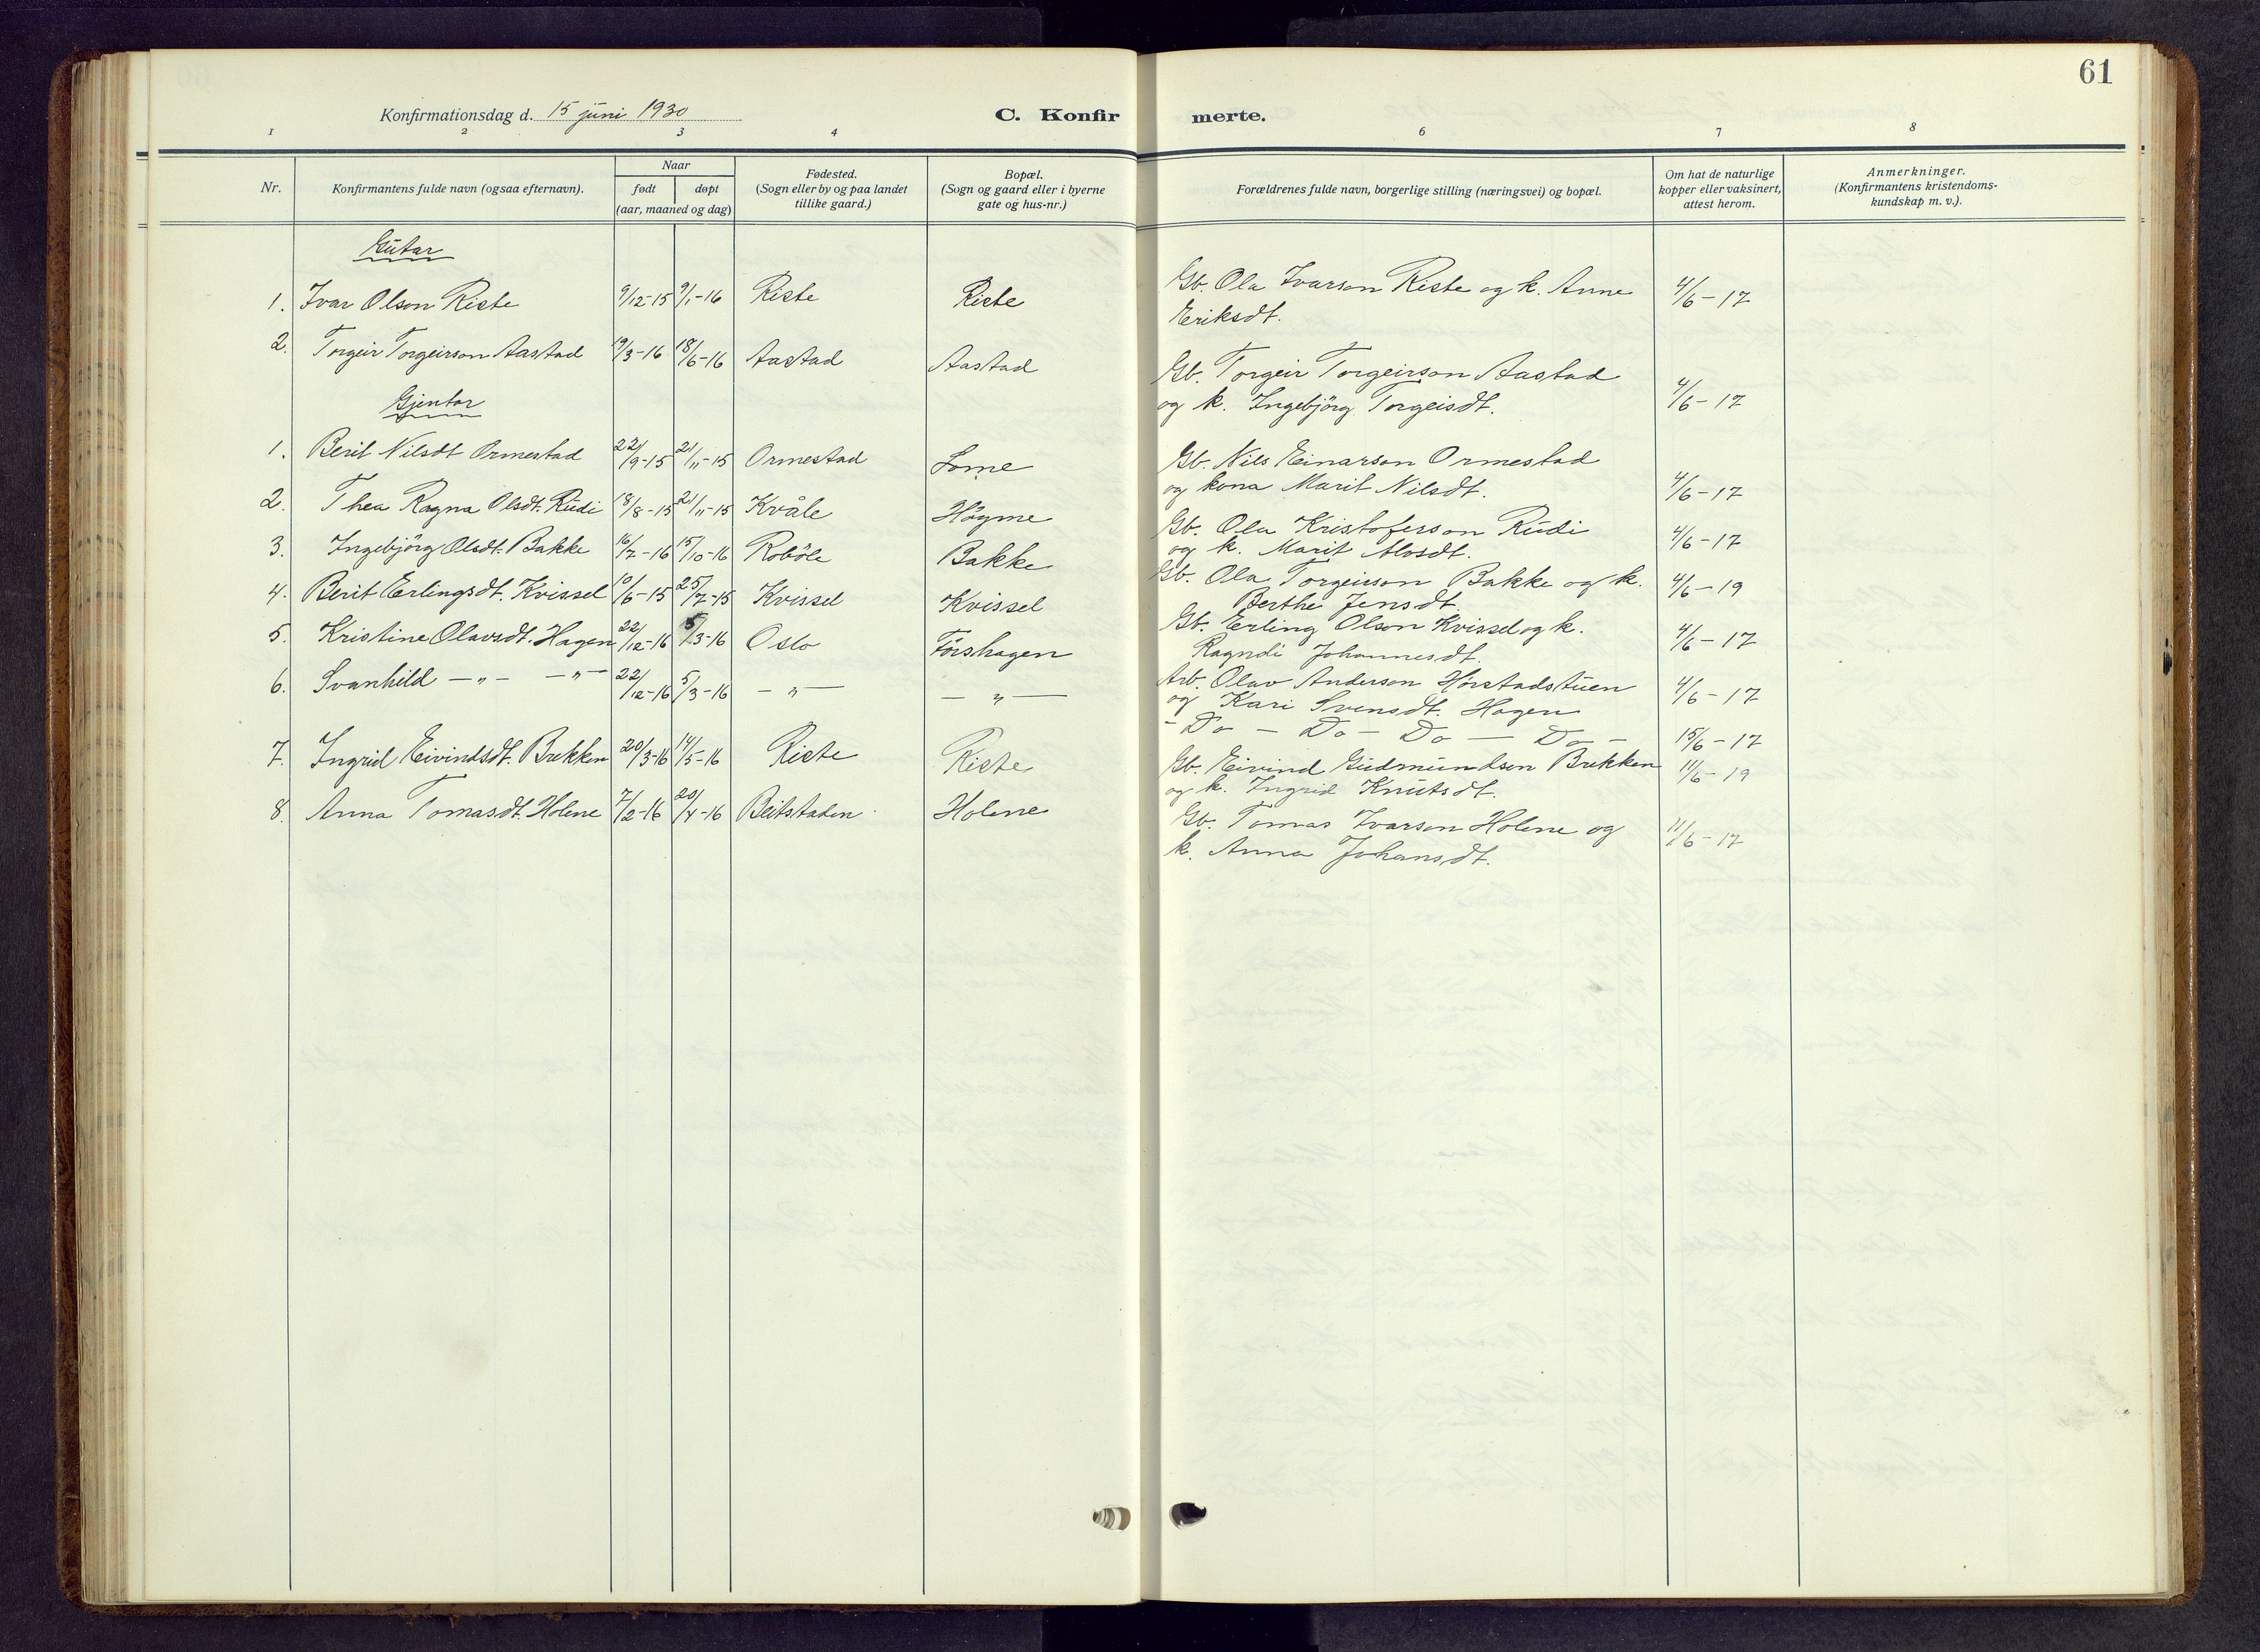 61
Konfirmationsdag d. 15 juni 1930
C. Konfirmerte.
1 2 3 4 6 7 8
Nr. Konfirmantens fulde navn (ogsaa efternavn). Naar født døpt (aar, maaned og dag) Fødested. (Sogn eller by og paa landet tillike gaard.) Bopæl. (Sogn og gaard eller i byerne gate og hus-nr.) Forældrenes fulde navn, borgerlige stilling (næringsvei) og bopæl. Om hat de naturlige kopper eller vaksinert, attest herom. Anmerkninger. (Konfirmantens kristendoms-kundskap m. v.).
Gutar
1. Ivar Olson Riste 9/12-15 9/1-16 Riste Riste Gb. Ola Ivarson Riste og k. Anne Eriksdt. 4/6-17
2. Torgeir Torgeirson Aastad 19/3-16 18/6-16 Aastad Aastad Gb. Torgeir Torgeirson Aastad og k. Ingebjörg Torgeisdt. 4/6-17
Gjentor
1. Berit Nilsdt Ormestad 22/9-15 21/11-15 Ormestad Lome Gb. Nils Einarson Ormestad og kona Marit Nilsdt. 4/6-17
2. Thea Ragna Olsdt. Rudi 18/8-15 21/11-15 Kvåle Högme Gb. Ola Kristoferson Rudi og k. Marit 4/6-17
3. Ingebjörg Olsdt. Bakke 16/7-16 15/10-16 Roböle Bakke Gb. Ola Torgeirson Bakke og k. Berthe Jensdt. 4/6-19
4. Berit Erlingsdt. Kvissel 10/6-15 25/7-15 Kvissel Kvissel Gb. Erling Olson Kvissel og k. Ragndi Johannesdt. 4/6-17
5. Kristine Olavsdt. Hagen 22/12-16 5/3-16 Oslo Förshagen Arb. Olav Anderson Hörstadstuen og Kari Svensdt. Hagen 4/6-17
6. Svanhild -"- -"- 22/12-16 5/3-16 -"- -"- - Do - Do - Do - Do - 15/6-17
7. Ingrid Eivindsdt. Brekken 20/3-16 14/5-16 Riste Riste Gb. Eivind Gudmundsen Brekken og k. Ingrid Knutsdt. 11/6-19
8. Anna Tomasdt. Holene 7/2-16 20/4-16 Beitstaden Holene Gb. Tomas Ivarson Holene og k. Anna Johansdt. 11/6-17